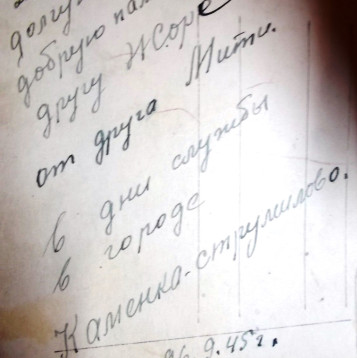 долгу
добрую пам
другу Жоре
от друга Мити.
в дни службы
в городе
Каменка-струмилово.
26.9.45г.